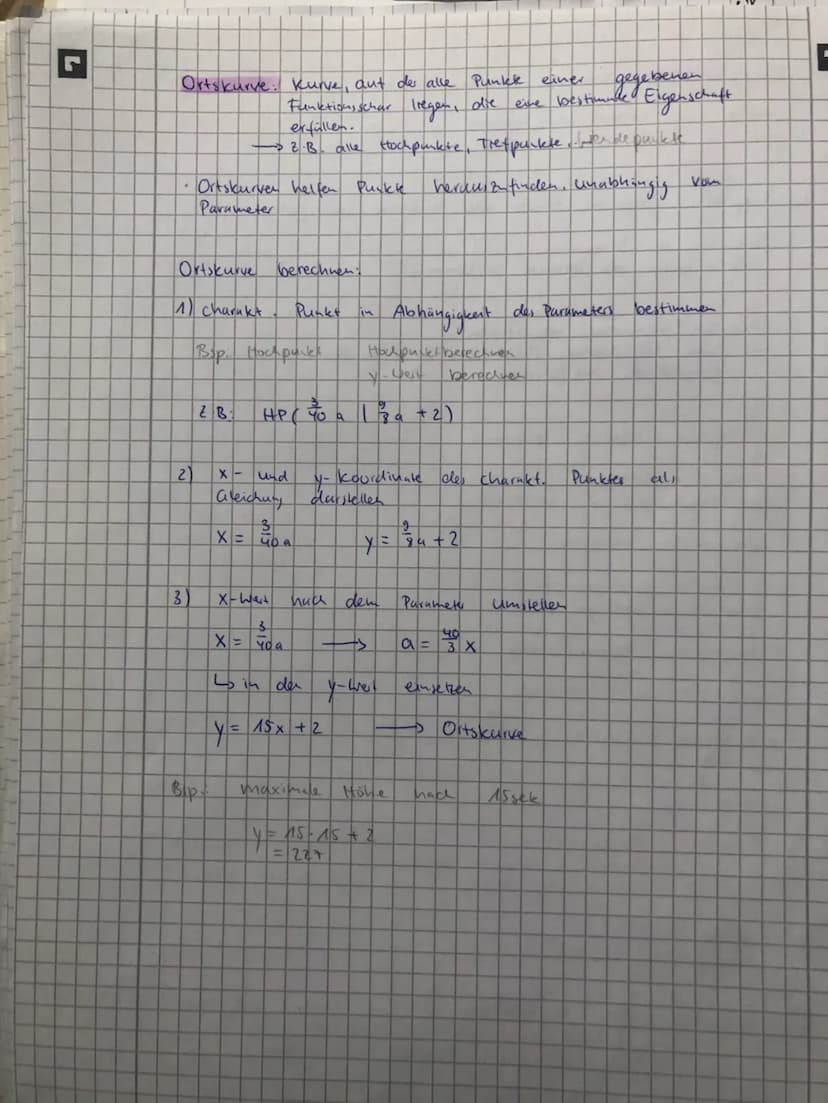 Ortskurve: Kurve, auf der alle Punkte einer gegebenen
Funktionsschar liegen, die eine bestimmte Eigenschaft
erfüllen.
→ z.B. alle Hochpunkte, Tiefpunkte, Wendepunkte
· Ortskurven helfen Punkte herauszufinden, unabhängig vom
Parameter
Ortskurve berechnen:
1) charakt. Punkt in Abhängigkeit des Parameters bestimmen
Bsp. Hochpunkt Hochpunkt berechnen
y-Wert berechnen
z B: HP( 3/40 a | 9/8 a + 2)
2) x- und y-Koordinate des charakt. Punktes als
Gleichung darstellen
x = 3/40 a y = 9/8 a + 2
3) x-Wert nach dem Parameter umstellen
x = 3/40 a → a = 40/3 x
↳ in den y-Wert einsetzen
y = 15x + 2 → Ortskurve
Bsp.: maximale Höhe nach 15sek
y = 15 · 15 + 2
= 227